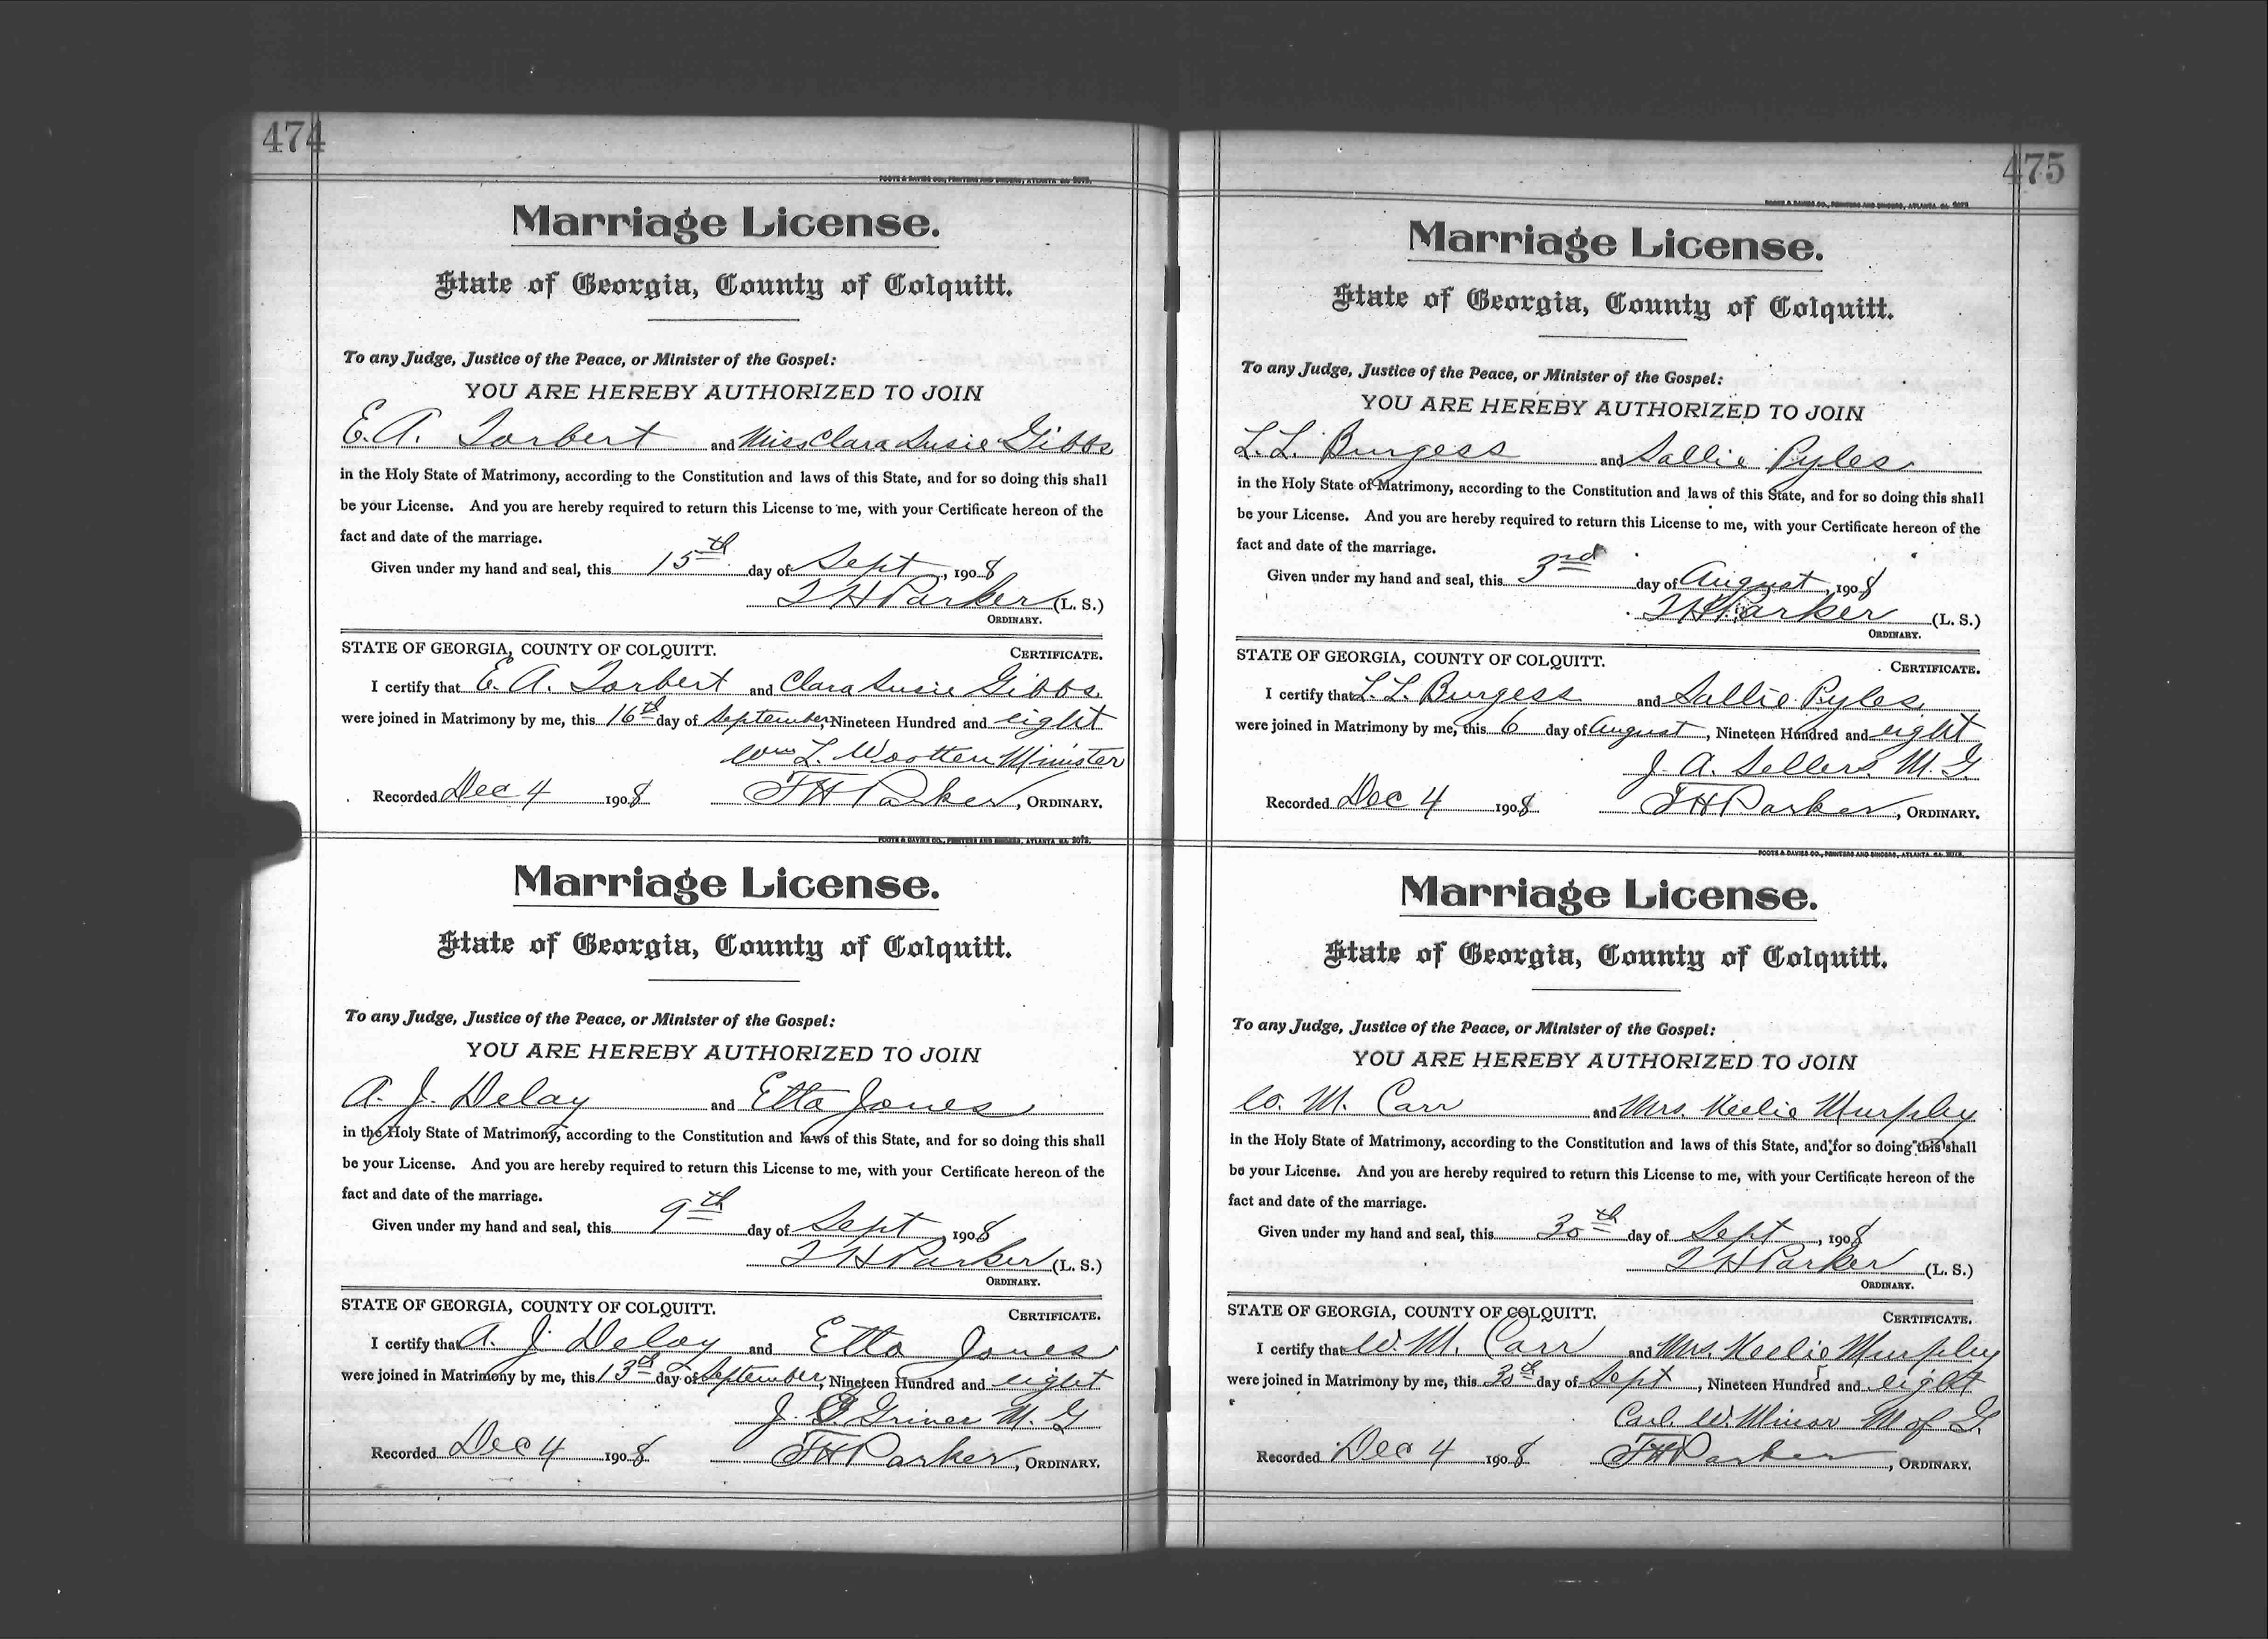 474
FOOTE & DAVIES CO., PRINTERS AND BINDERS, ATLANTA GA.
Marriage License.
State of Georgia, County of Colquitt.
To any Judge, Justice of the Peace, or Minister of the Gospel:
YOU ARE HEREBY AUTHORIZED TO JOIN
E. A. Torbert and Miss Clara Susie Gibbs
in the Holy State of Matrimony, according to the Constitution and laws of this State, and for so doing this shall
be your License. And you are hereby required to return this License to me, with your Certificate hereon of the
fact and date of the marriage.
Given under my hand and seal, this 15th day of Sept, 1908
T H Parker (L. S.)
ORDINARY.
STATE OF GEORGIA, COUNTY OF COLQUITT. CERTIFICATE.
I certify that E. A. Torbert and Clara Susie Gibbs
were joined in Matrimony by me, this 16th day of September, Nineteen Hundred and eight
Wm L. Wootten Minister
Recorded Dec 4 1908 T H Parker, ORDINARY.
FOOTE & DAVIES CO., PRINTERS AND BINDERS, ATLANTA GA.
Marriage License.
State of Georgia, County of Colquitt.
To any Judge, Justice of the Peace, or Minister of the Gospel:
YOU ARE HEREBY AUTHORIZED TO JOIN
A. J. Delay and Etta Jones
in the Holy State of Matrimony, according to the Constitution and laws of this State, and for so doing this shall
be your License. And you are hereby required to return this License to me, with your Certificate hereon of the
fact and date of the marriage.
Given under my hand and seal, this 9th day of Sept, 1908
T H Parker (L. S.)
ORDINARY.
STATE OF GEORGIA, COUNTY OF COLQUITT. CERTIFICATE.
I certify that A. J. Delay and Etta Jones
were joined in Matrimony by me, this 13th day of September, Nineteen Hundred and eight
J. Griner M. G
Recorded Dec 4 1908 T H Parker, ORDINARY.
475
FOOTE & DAVIES CO., PRINTERS AND BINDERS, ATLANTA GA.
Marriage License.
State of Georgia, County of Colquitt.
To any Judge, Justice of the Peace, or Minister of the Gospel:
YOU ARE HEREBY AUTHORIZED TO JOIN
L. L. Burgess and Sallie Pyles
in the Holy State of Matrimony, according to the Constitution and laws of this State, and for so doing this shall
be your License. And you are hereby required to return this License to me, with your Certificate hereon of the
fact and date of the marriage.
Given under my hand and seal, this 3rd day of August, 1908
T H Parker (L. S.)
ORDINARY.
STATE OF GEORGIA, COUNTY OF COLQUITT. CERTIFICATE.
I certify that L. L. Burgess and Sallie Pyles
were joined in Matrimony by me, this 6 day of August, Nineteen Hundred and eight
J. A. Sellers M. G.
Recorded Dec 4 1908 T H Parker, ORDINARY.
FOOTE & DAVIES CO., PRINTERS AND BINDERS, ATLANTA GA.
Marriage License.
State of Georgia, County of Colquitt.
To any Judge, Justice of the Peace, or Minister of the Gospel:
YOU ARE HEREBY AUTHORIZED TO JOIN
W. M. Carr and Mrs. Neelie Murphey
in the Holy State of Matrimony, according to the Constitution and laws of this State, and for so doing this shall
be your License. And you are hereby required to return this License to me, with your Certificate hereon of the
fact and date of the marriage.
Given under my hand and seal, this 30th day of Sept, 1908
T H Parker (L. S.)
ORDINARY.
STATE OF GEORGIA, COUNTY OF COLQUITT. CERTIFICATE.
I certify that W. M. Carr and Mrs. Neelie Murphey
were joined in Matrimony by me, this 30th day of Sept, Nineteen Hundred and eight
Carl W. Minor M of G.
Recorded Dec 4 1908 T H Parker, ORDINARY.